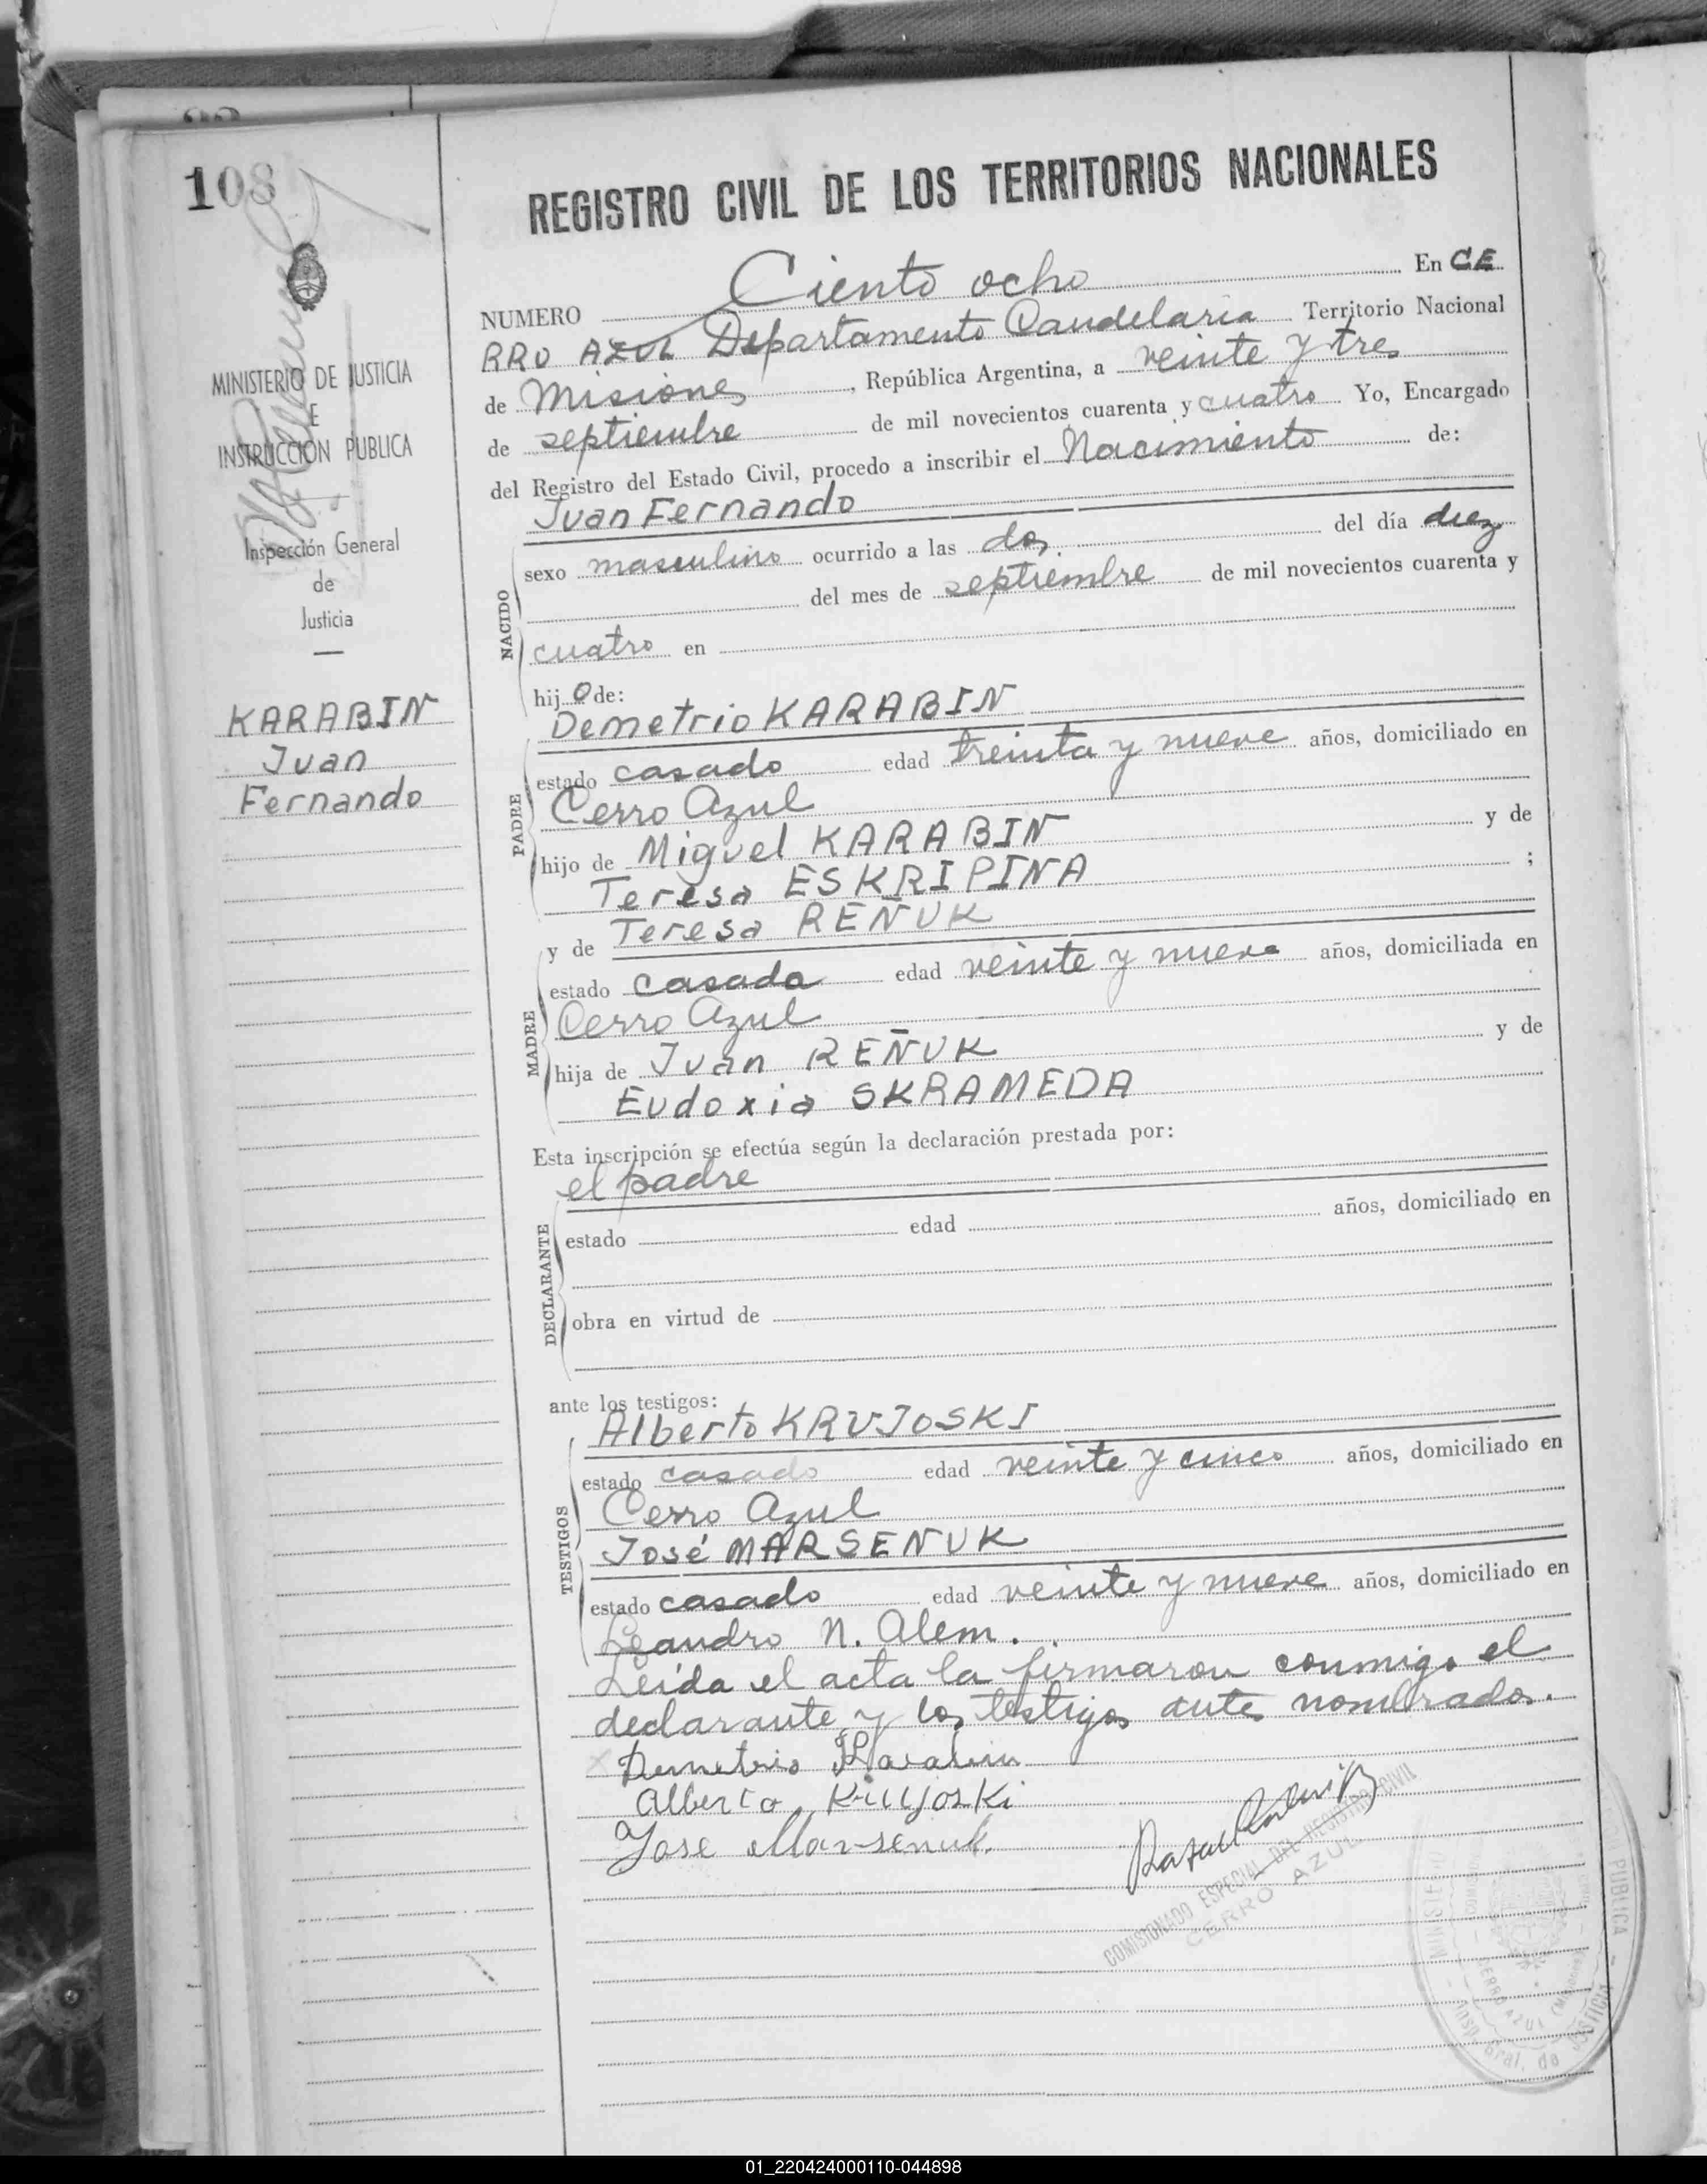 108
MINISTERIO DE JUSTICIA
E
INSTRUCCIÓN PÚBLICA
Inspección General
de
Justicia
KARABIN
Juan
Fernando
REGISTRO CIVIL DE LOS TERRITORIOS NACIONALES
NUMERO Ciento ocho En CE
RRO AZUL Departamento Candelaria Territorio Nacional
de Misiones, República Argentina, a veinte y tres
de septiembre de mil novecientos cuarenta y cuatro Yo, Encargado
del Registro del Estado Civil, procedo a inscribir el Nacimiento de:
Juan Fernando
NACIDO
sexo masculino ocurrido a las dos del día diez
del mes de septiembre de mil novecientos cuarenta y
cuatro en
hijo de:
Demetrio KARABIN
PADRE
estado casado edad treinta y nueve años, domiciliado en
Cerro Azul
hijo de Miguel KARABIN y de
Teresa ESKRIPINA ;
y de Teresa REÑUK
MADRE
estado casada edad veinte y nueve años, domiciliada en
Cerro Azul
hija de Juan REÑUK y de
Eudoxia SKRAMEDA
Esta inscripción se efectúa según la declaración prestada por:
el padre
DECLARANTE
estado edad años, domiciliado en
obra en virtud de
ante los testigos:
Alberto KRUJOSKI
TESTIGOS
estado casado edad veinte y cinco años, domiciliado en
Cerro Azul
José MARSEÑUK
estado casado edad veinte y nueve años, domiciliado en
Leandro N. Alem.
Leída el acta la firmaron conmigo el
declarante y los testigos antes nombrados.
Demetrio Karabin
Alberto Krujoski
Jose Marsenuk
COMISIONADO ESPECIAL DEL REGISTRO CIVIL
CERRO AZUL
01_220424000110-044898